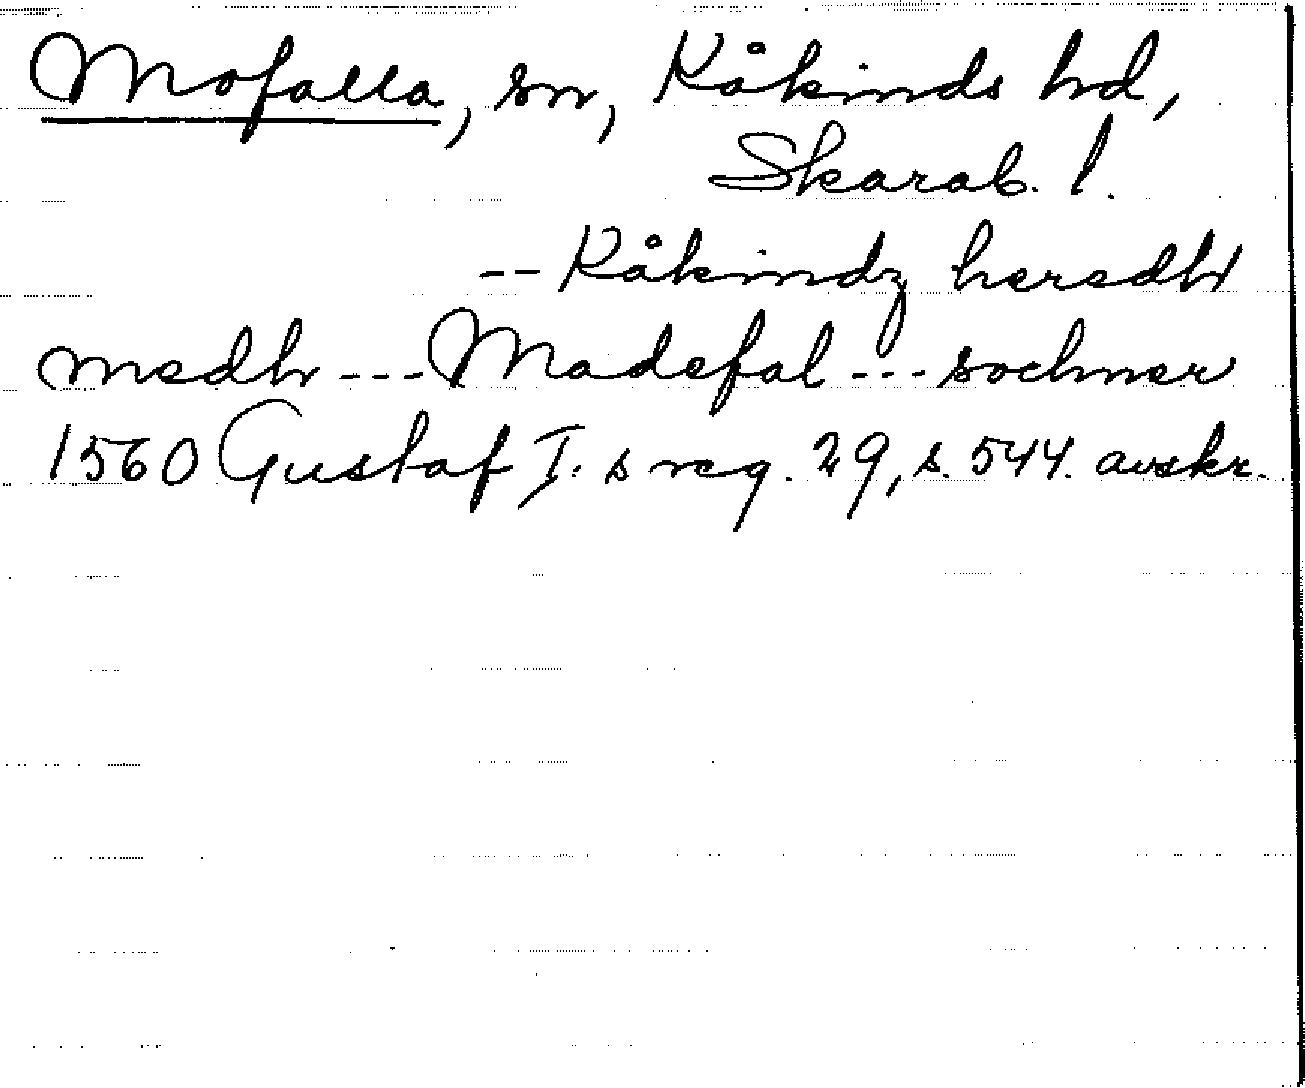 Mofalla, sn, Kåkinds hd,
Skarab. l.
-- Kåkindz heredh
medh --- Madefal --- sochner
1560 Gustaf I:s reg. 29, s. 544. avskr.